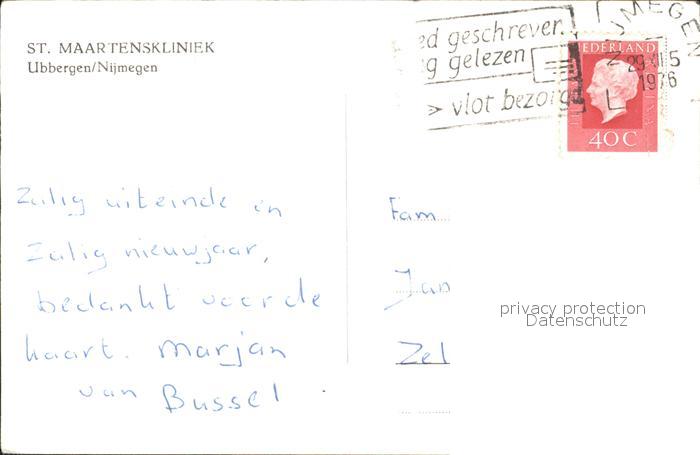 ST. MAARTENSKLINIEK
Ubbergen/Nijmegen
ed geschreven
g gelezen
> vlot bezorg
NIJMEGEN
29 XII 5
1976
NEDERLAND
40 C
Zalig uiteinde en
Zalig nieuwjaar,
bedankt voor de
kaart. Marjan
van Bussel.
Fam
Jan
Zel
privacy protection
Datenschutz